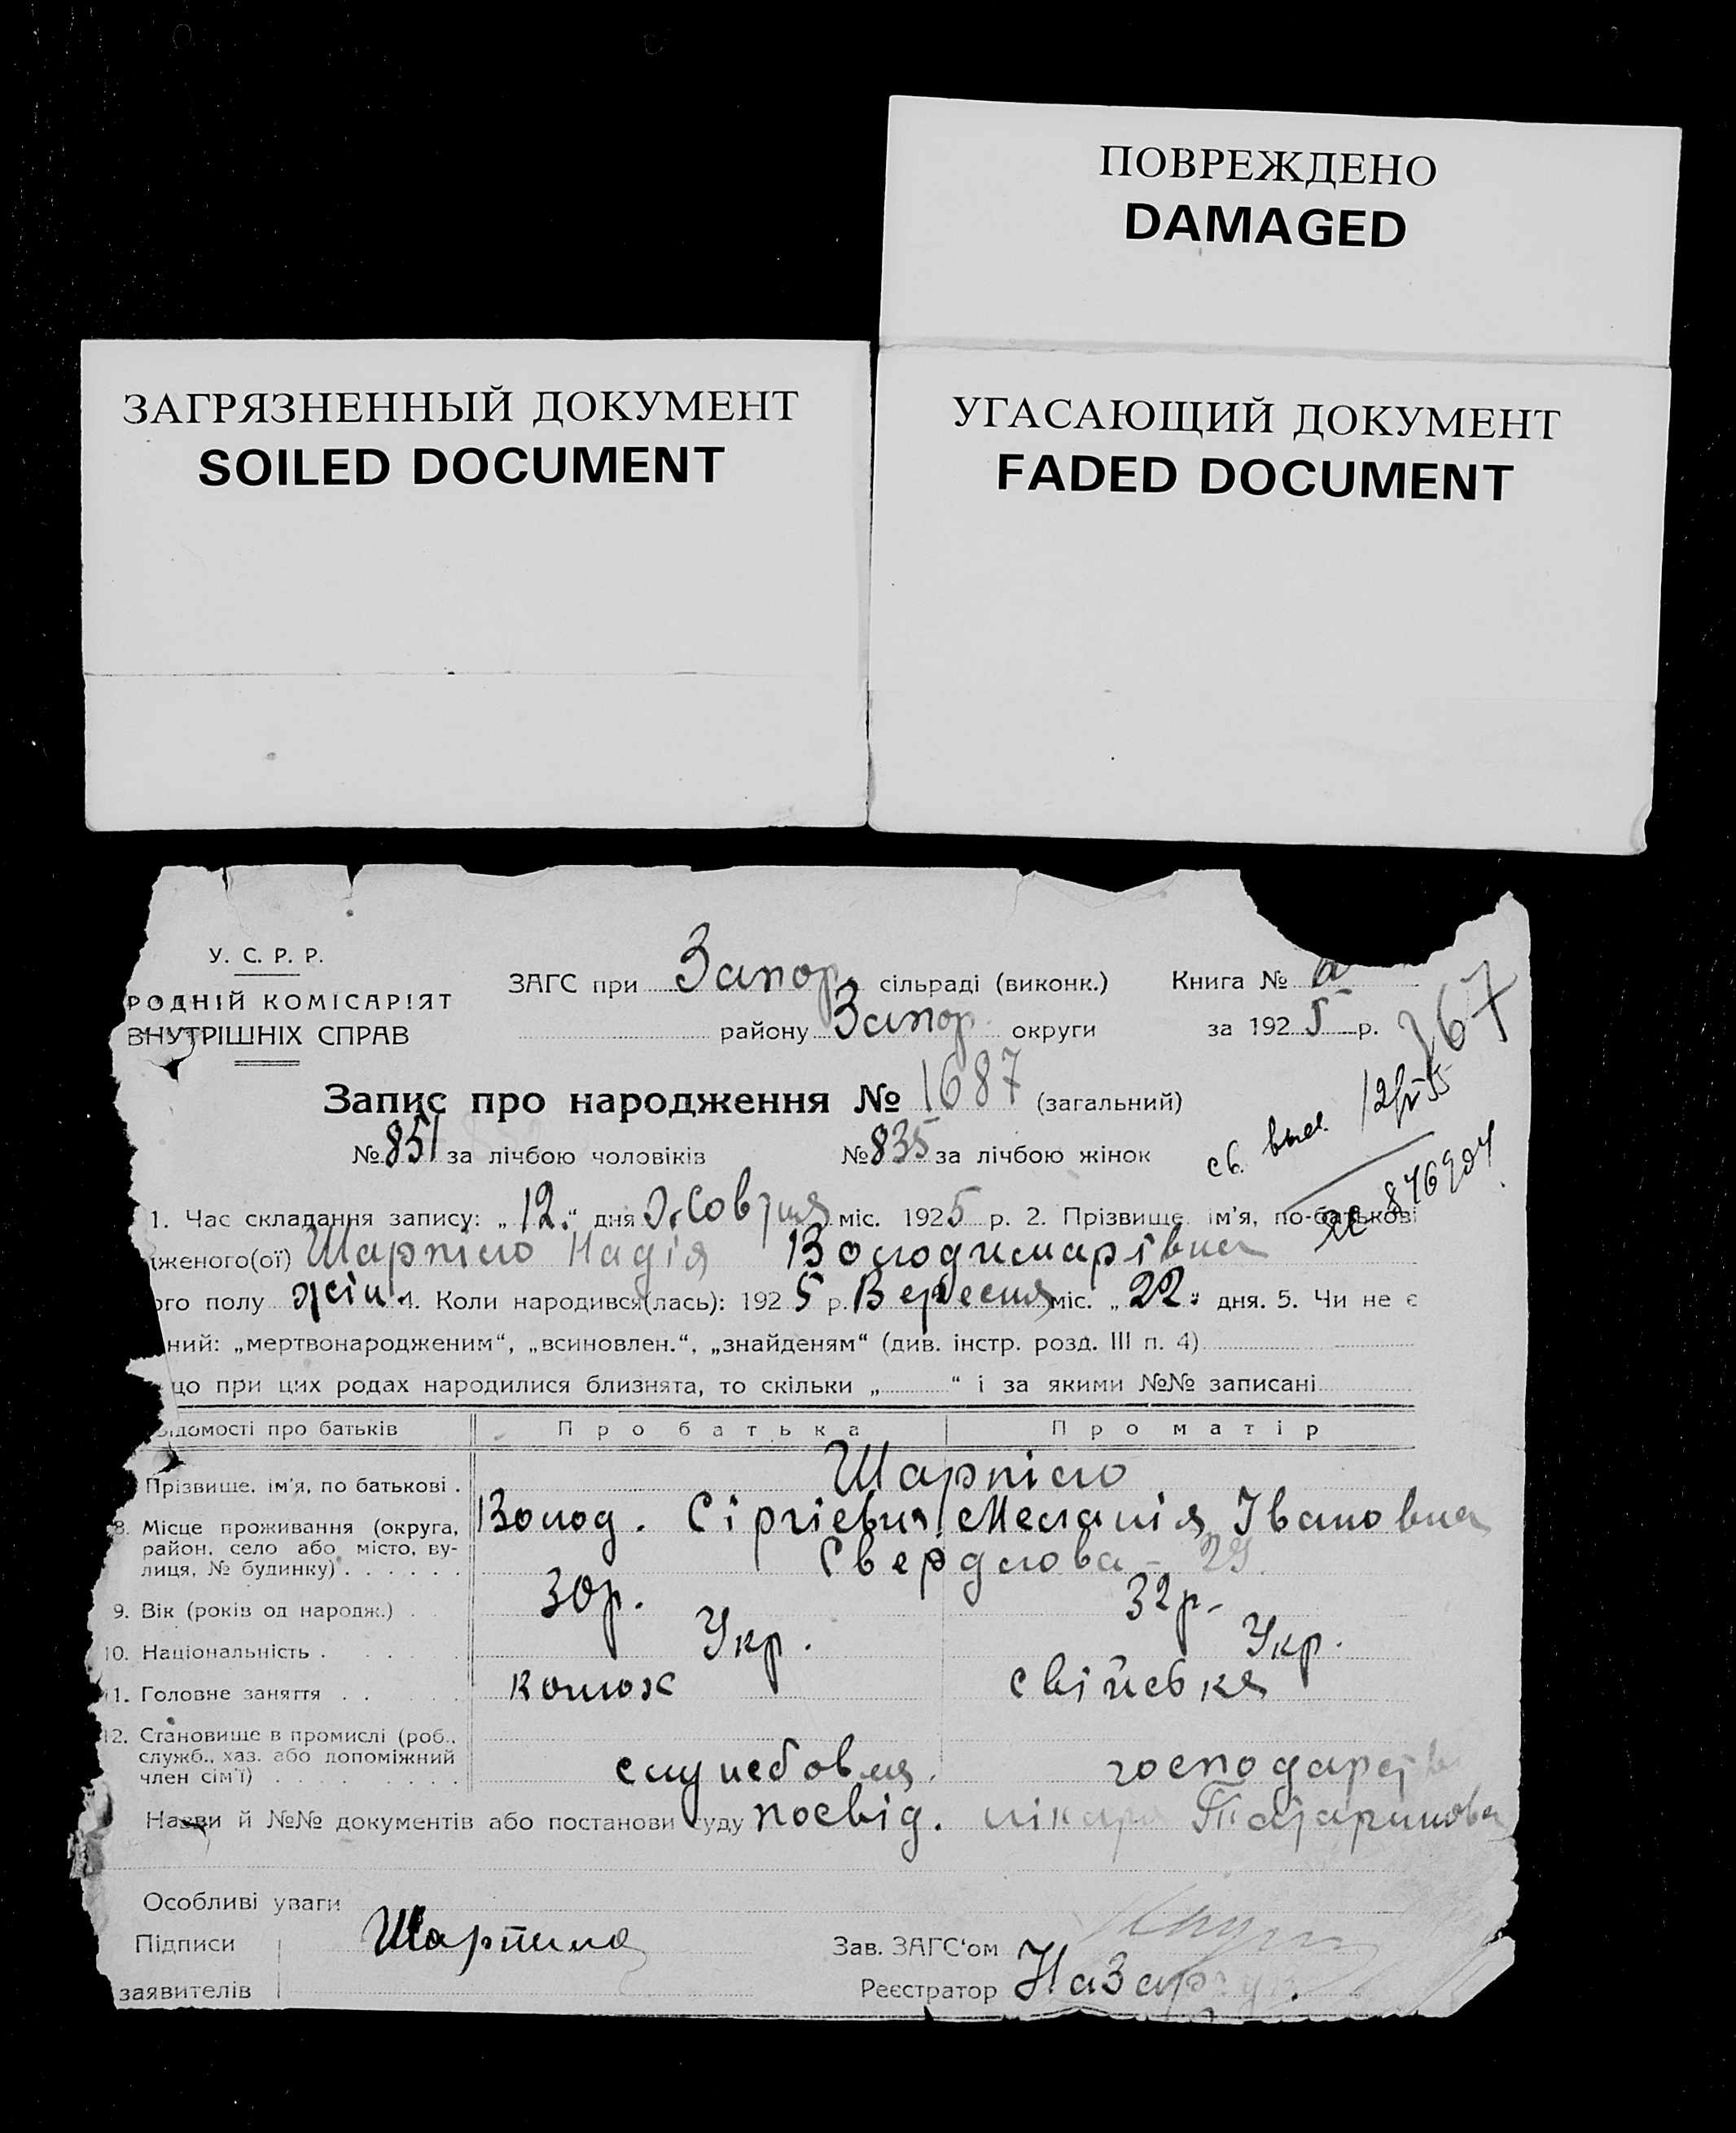 ПОВРЕЖДЕНО
DAMAGED
ЗАГРЯЗНЕННЫЙ ДОКУМЕНТ
SOILED DOCUMENT
УГАСАЮЩИЙ ДОКУМЕНТ
FADED DOCUMENT
У. С. Р. Р.
РОДНІЙ КОМІСАРІЯТ
ВНУТРІШНІХ СПРАВ
ЗАГС при Запор. сільраді (виконк.)
району Запор. округи
Книга №
за 1925 р.
167
Запис про народження № 1687 (загальний)
№ 851 за лічбою чоловіків № 835 за лічбою жінок
св. выд.
1. Час складання запису: „12.“ дня Жовтня міс. 1925 р. 2. Прізвище, ім'я, по-батькові
женого(ої) Шарпіло Надія Володимирівна
ого полу жін. 4. Коли народився(лась): 1925 р. Вересня міс. „22“ дня. 5. Чи не є
ний: „мертвонародженим“, „всиновлен.“, „знайденям“ (див. інстр. розд. III п. 4)
що при цих родах народилися близнята, то скільки „ “ і за якими №№ записані
ідомості про батьків Про батька Про матір
Шарпіло
Прізвище, ім'я, по батькові . Волод. Сіргієвич Меланія Івановна
8. Місце проживання (округа, район, село або місто, вулиця, № будинку) . . . . . . Свердлова - 29.
9. Вік (років од народж.) . 30р. 32р.
10. Національність . Укр. Укр.
11. Головне заняття . . свійська
12. Становище в промислі (роб., служб., хаз. або допоміжний член сім'ї) . . . . службовця. господарств
Назви й №№ документів або постанови суду посвід. лікаря
Особливі уваги
Підписи Шарпило Зав. ЗАГС'ом
заявителів Реєстратор